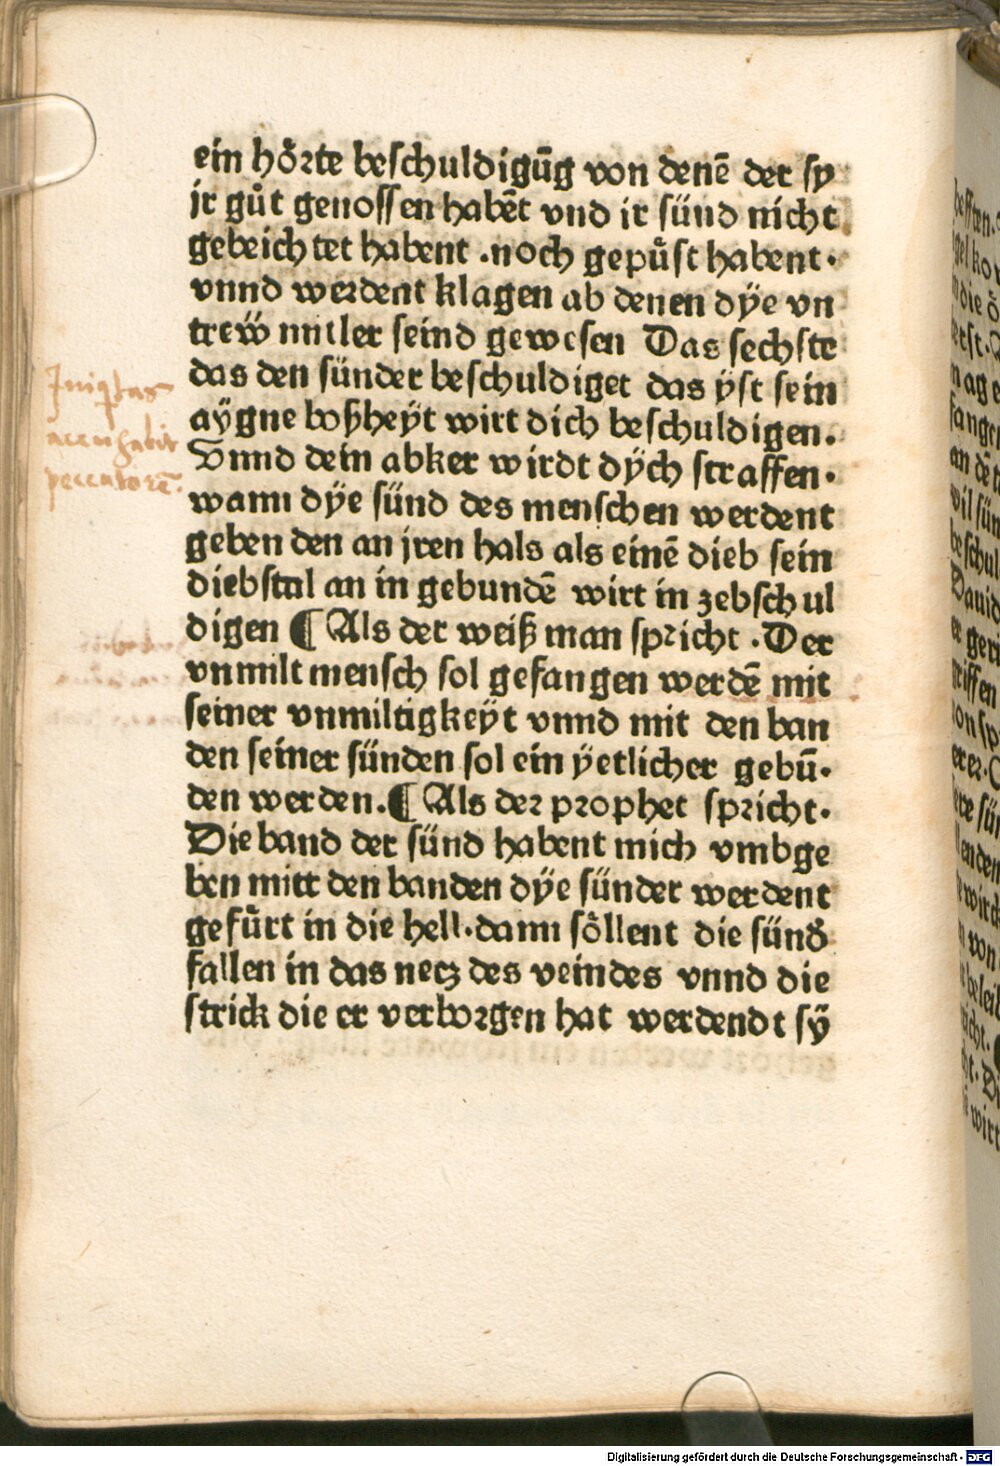 ein hoͤrte beschuldigūg von denē der sy
jr guͦt genossen habēt vnd ir sünd nicht
gebeichtet habent .noch gepuͤst habent.
vnnd werdent klagen ab denen dÿe vn
treẅ mitler seind gewesen Das sechste
das den sünder beschuldiget das ÿst sein
aÿgne boßheÿt wirt dich beschuldigen.
Vnnd dein abker wirdt dÿch straffen.
wann dÿe sünd des menschen werdent
geben den an jren hals als einē dieb sein
diebstal an in gebundē wirt in zebschul
digen ¶ Als der weiß man spricht .Der
vnmilt mensch sol gefangen werdē mit
seiner vnmiltigkeÿt vnnd mit den ban
den seiner sünden sol ein ÿetlicher gebū.
den werden.¶ Als der prophet spricht.
Die band der sünd habent mich vmbge
ben mitt den banden dÿe sünder werdent
gefuͤrt in die hell.dann soͤllent die sünd̕
fallen in das necz des veindes vnnd die
strick die er verborgen hat werdendt sÿ
Iniqtas
accusabit
peccatorē.
Digitalisierung gefördert durch die Deutsche Forschungsgemeinschaft - DFG